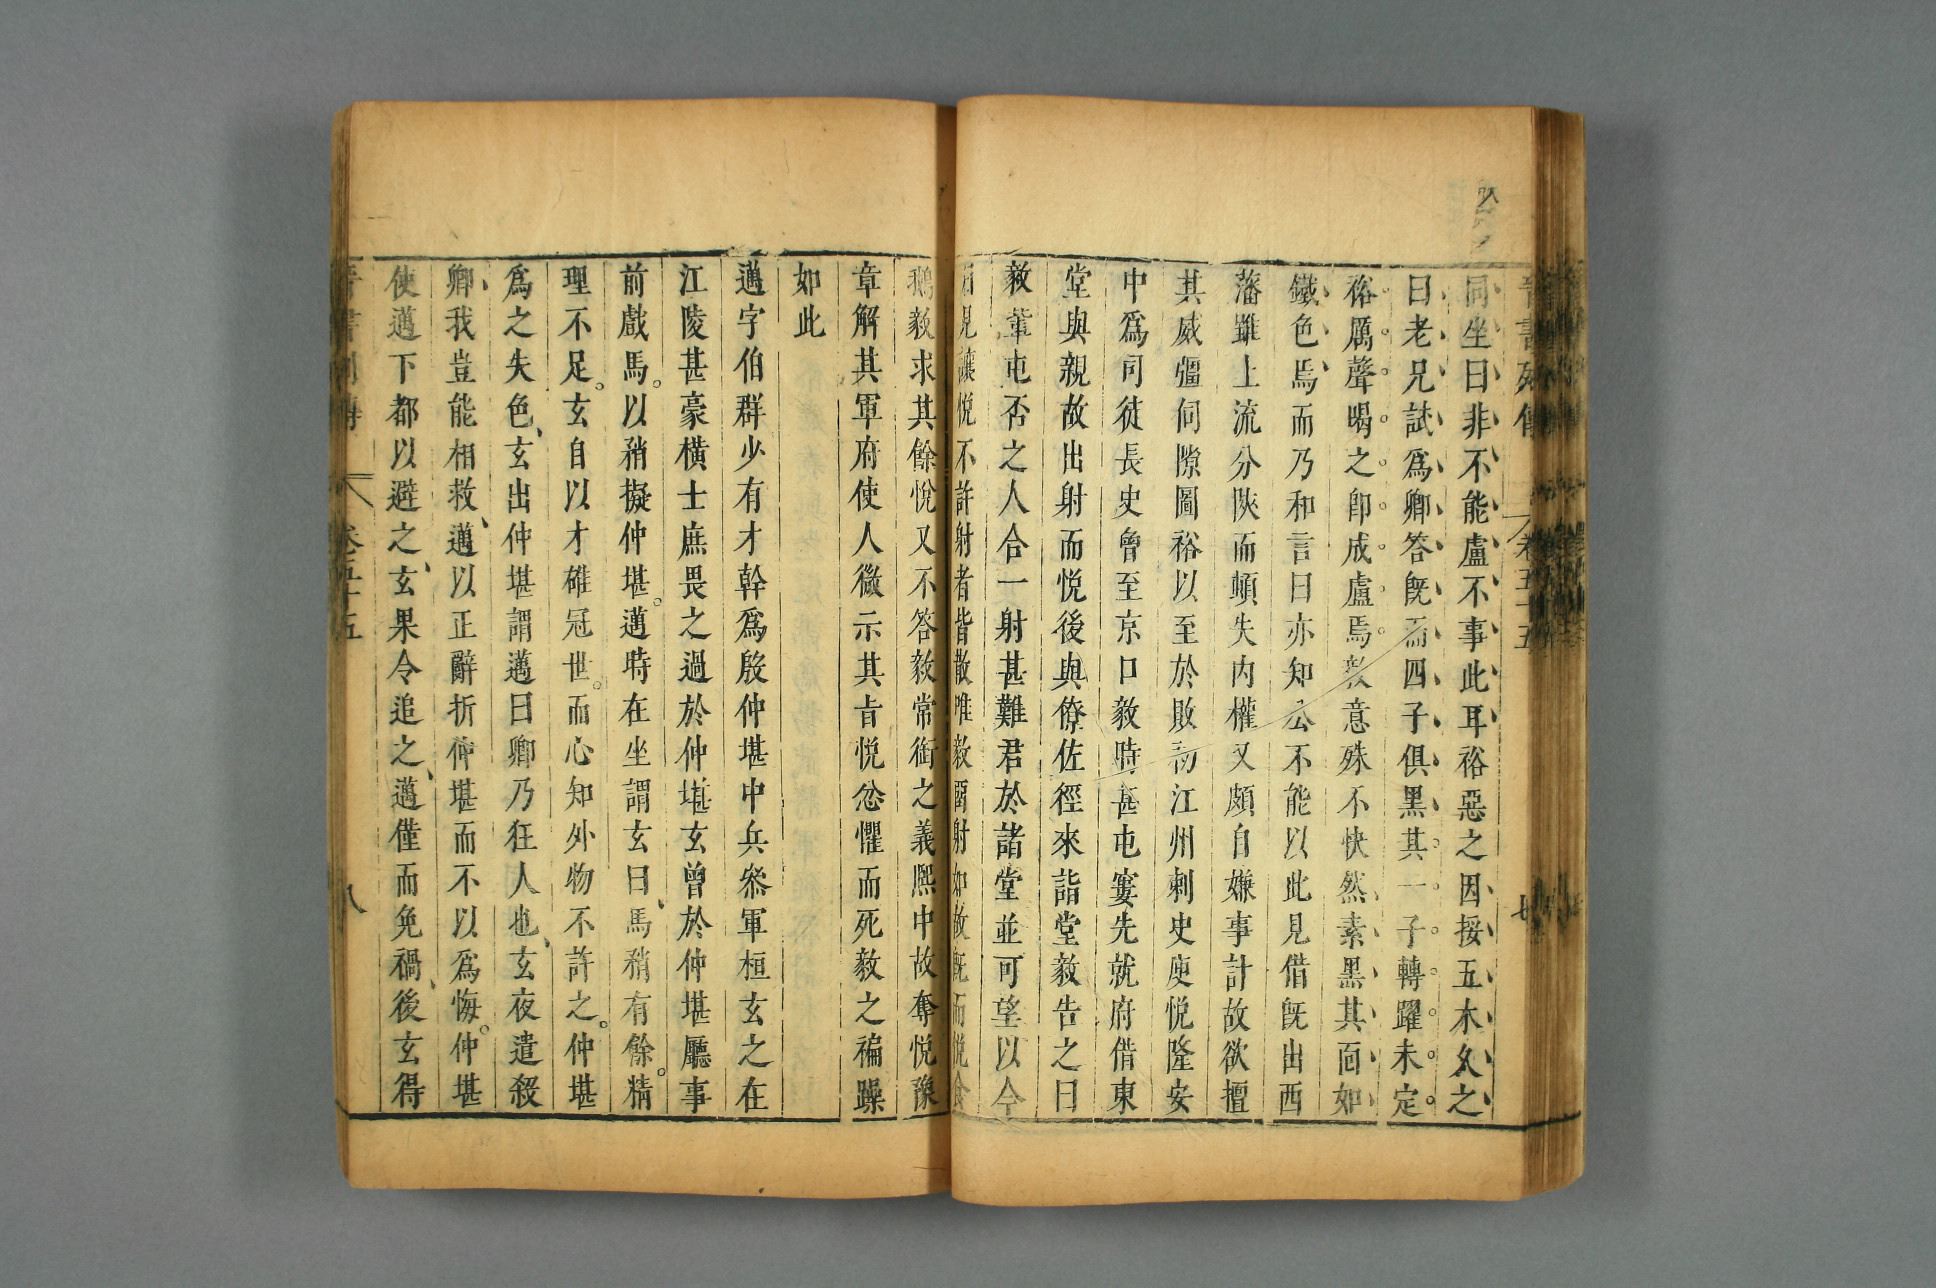 晉書列傳 卷五十五 七
同坐曰非不能盧不事此耳裕惡之因挼五木久之
曰老兄試爲卿答旣而四子俱黑其一子轉躍未定
裕厲聲喝之卽成盧焉毅意殊不快然素黑其面如
鐵色焉而乃和言曰亦知公不能以此見借旣出西
藩雖上流分陝而頓失內權又頗自嫌事計故欲擅
其威彊伺隙圖裕以至於敗初江州刺史庾悅隆安
中爲司徒長史曾至京口毅時甚屯窶先就府借東
堂與親故出射而悅後與僚佐徑來詣堂毅告之曰
毅輩屯否之人合一射甚難君於諸堂並可望以今
日見讓悅不許射者皆散唯毅留射如故旣而悅食
鵝毅求其餘悅又不答毅常銜之義熙中故奪悅豫
章解其軍府使人微示其旨悅忿懼而死毅之褊躁
如此
邁字伯群少有才幹爲殷仲堪中兵參軍桓玄之在
江陵甚豪橫士庶畏之過於仲堪玄曾於仲堪廳事
前戲馬以矟擬仲堪邁時在坐謂玄曰馬矟有餘精
理不足玄自以才雄冠世而心知外物不許之仲堪
爲之失色玄出仲堪謂邁曰卿乃狂人也玄夜遣殺
卿我豈能相救邁以正辭折仲堪而不以爲悔仲堪
使邁下都以避之玄果令追之邁僅而免禍後玄得
晉書列傳 卷五十五 八